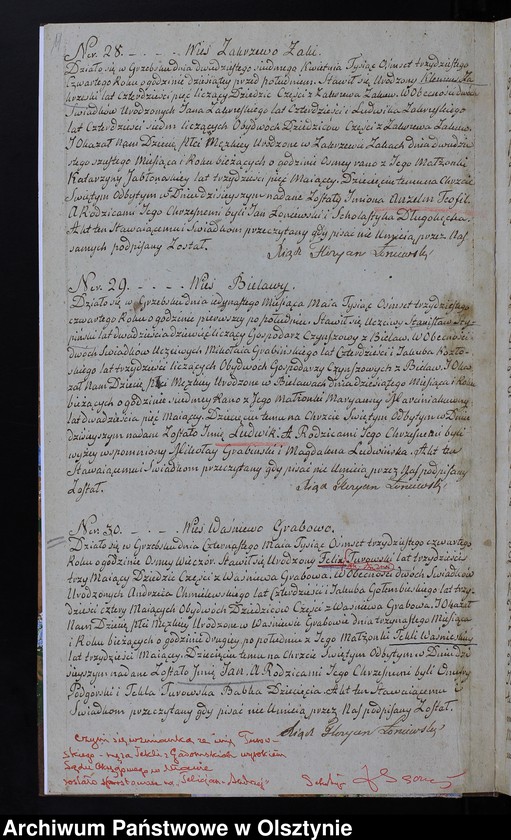 Nro. 28. - . - . - . Wieś Zakrzewo Zalesie.
Działo się w Grzebsku dnia dwudziestego siodmego Kwietnia Tysiąc Ośmset trzydziestego
Czwartego Roku o godzinie dziesiątej przed południem. Stawił się Urodzony Klemens Za-
krzeski lat czterdzieści pięć liczący Dziedzic Części z Zakrzewa
Świadków Urodzonych Jana Zakrzeskiego lat Czterdzieści i Ludwika Zakrzeskiego
lat Czterdzieści siedm liczących Obydwoch Dziedziców Części z Zakrzewa
i Okazał Nam Dziecię Płci Męzkiey Urodzone w Zakrzewie dnia dwudzie-
stego szostego Miesiąca i Roku bieżących o godzinie Osmey rano z Jego Małżonki
Katarzyny Jabłonowskiey lat trzydzieści pięć Maiącey. Dziecięciu temu na Chrzcie
Swiętym Odbytym w Dniu dzisieyszym nadane Zostały Imiona Anzelm Teofil.
A Rodzicami Jego Chrzestnemi byli Jan Łoniewski i Scholastyka Długołęcka.
Akt ten Stawaiącemu i Swiadkom przeczytany gdy pisać nie Umieią przez Nas
samych podpisany Został.
Xiądz Floryan Łoniewski
Nro. 29. - . - . - . Wieś Bielawy.
Działo się w Grzebsku dnia iedynastego Miesiąca Maia Tysiąc Ośmset trzydziestego
czwartego Roku o godzinie pierwszey po południu. Stawił się Uczciwy Stanisław
lat dwadzieścia dziewięć liczący Gospodarz Czynszowy z Bielaw. W Obecności
dwóch Swiadków Uczciwych Mikołaia Grabińskiego lat Czterdzieści i Jakuba Kozło-
skiego lat trzydzieści liczących Obydwoch Gospodarzy Czynszowych z Bielaw. I Oka-
zał Nam Dziecię płci Męzkiey Urodzone w Bielawach dnia dziesiątego Miesiąca i Roku
bieżących o godzinie siodmey Rano z Jego Małżonki Maryanny
lat dwadzieścia pięć Maiącey. Dziecięciu temu na Chrzcie Swiętym Odbytym w Dniu
dzisieyszym nadane Zostało Imię Ludwik. A Rodzicami Jego Chrzestnemi byli
wyżey wspomniony Mikołay Grabiński i Magdalena Ludwińska. Akt ten
Stawaiącemu i Swiadkom przeczytany gdy pisać nie Umieią przez Nas podpisany
Został.
Xiądz Floryan Łoniewski
Nro. 30. - . - . - . Wieś Waśniewo Grabowo.
Działo się w Grzebsku dnia Czternastego Maia Tysiąc Ośmset trzydziestego czwartego
Roku o godzinie Osmey Wieczor. Stawił się Urodzony Felix Turowski lat trzydzieści
trzy Maiący Dziedzic Części z Waśniewa Grabowa. W Obecności dwóch Swiadków
Urodzonych Andrzeia Chmielewskiego lat Czterdzieści i Jakuba Gołembieskiego lat trzy-
dzieści cztery Maiących Obydwoch Dziedziców Części z Waśniewa Grabowa. I Okazał
Nam Dziecię płci Męzkiey Urodzone w Waśniewie Grabowie dnia trzynastego Miesiąca
i Roku bieżących o godzinie drugiey po południu z Jego Małżonki Tekli Waśniewskiey
lat trzydzieści Maiącey. Dziecięciu temu na Chrzcie Swiętym Odbytym w Dniu dzi-
sieyszym nadane Zostało Imię Jan. A Rodzicami Jego Chrzestnemi byli
Podgórski i Tekla Turowska Babka Dziecięcia. Akt ten Stawaiącemu i
Swiadkom przeczytany gdy pisać nie Umieią przez Nas podpisany Został.
Xiądz Floryan Łoniewski
Czyni się wzmiankę że imię Turow-
skiego - męża Tekli z Gadomskich wyrokiem
Sądu Okręgowego w Mławie
zostało sprostowane na "Felicjan-Andrzej"
Archiwum Państwowe w Olsztynie